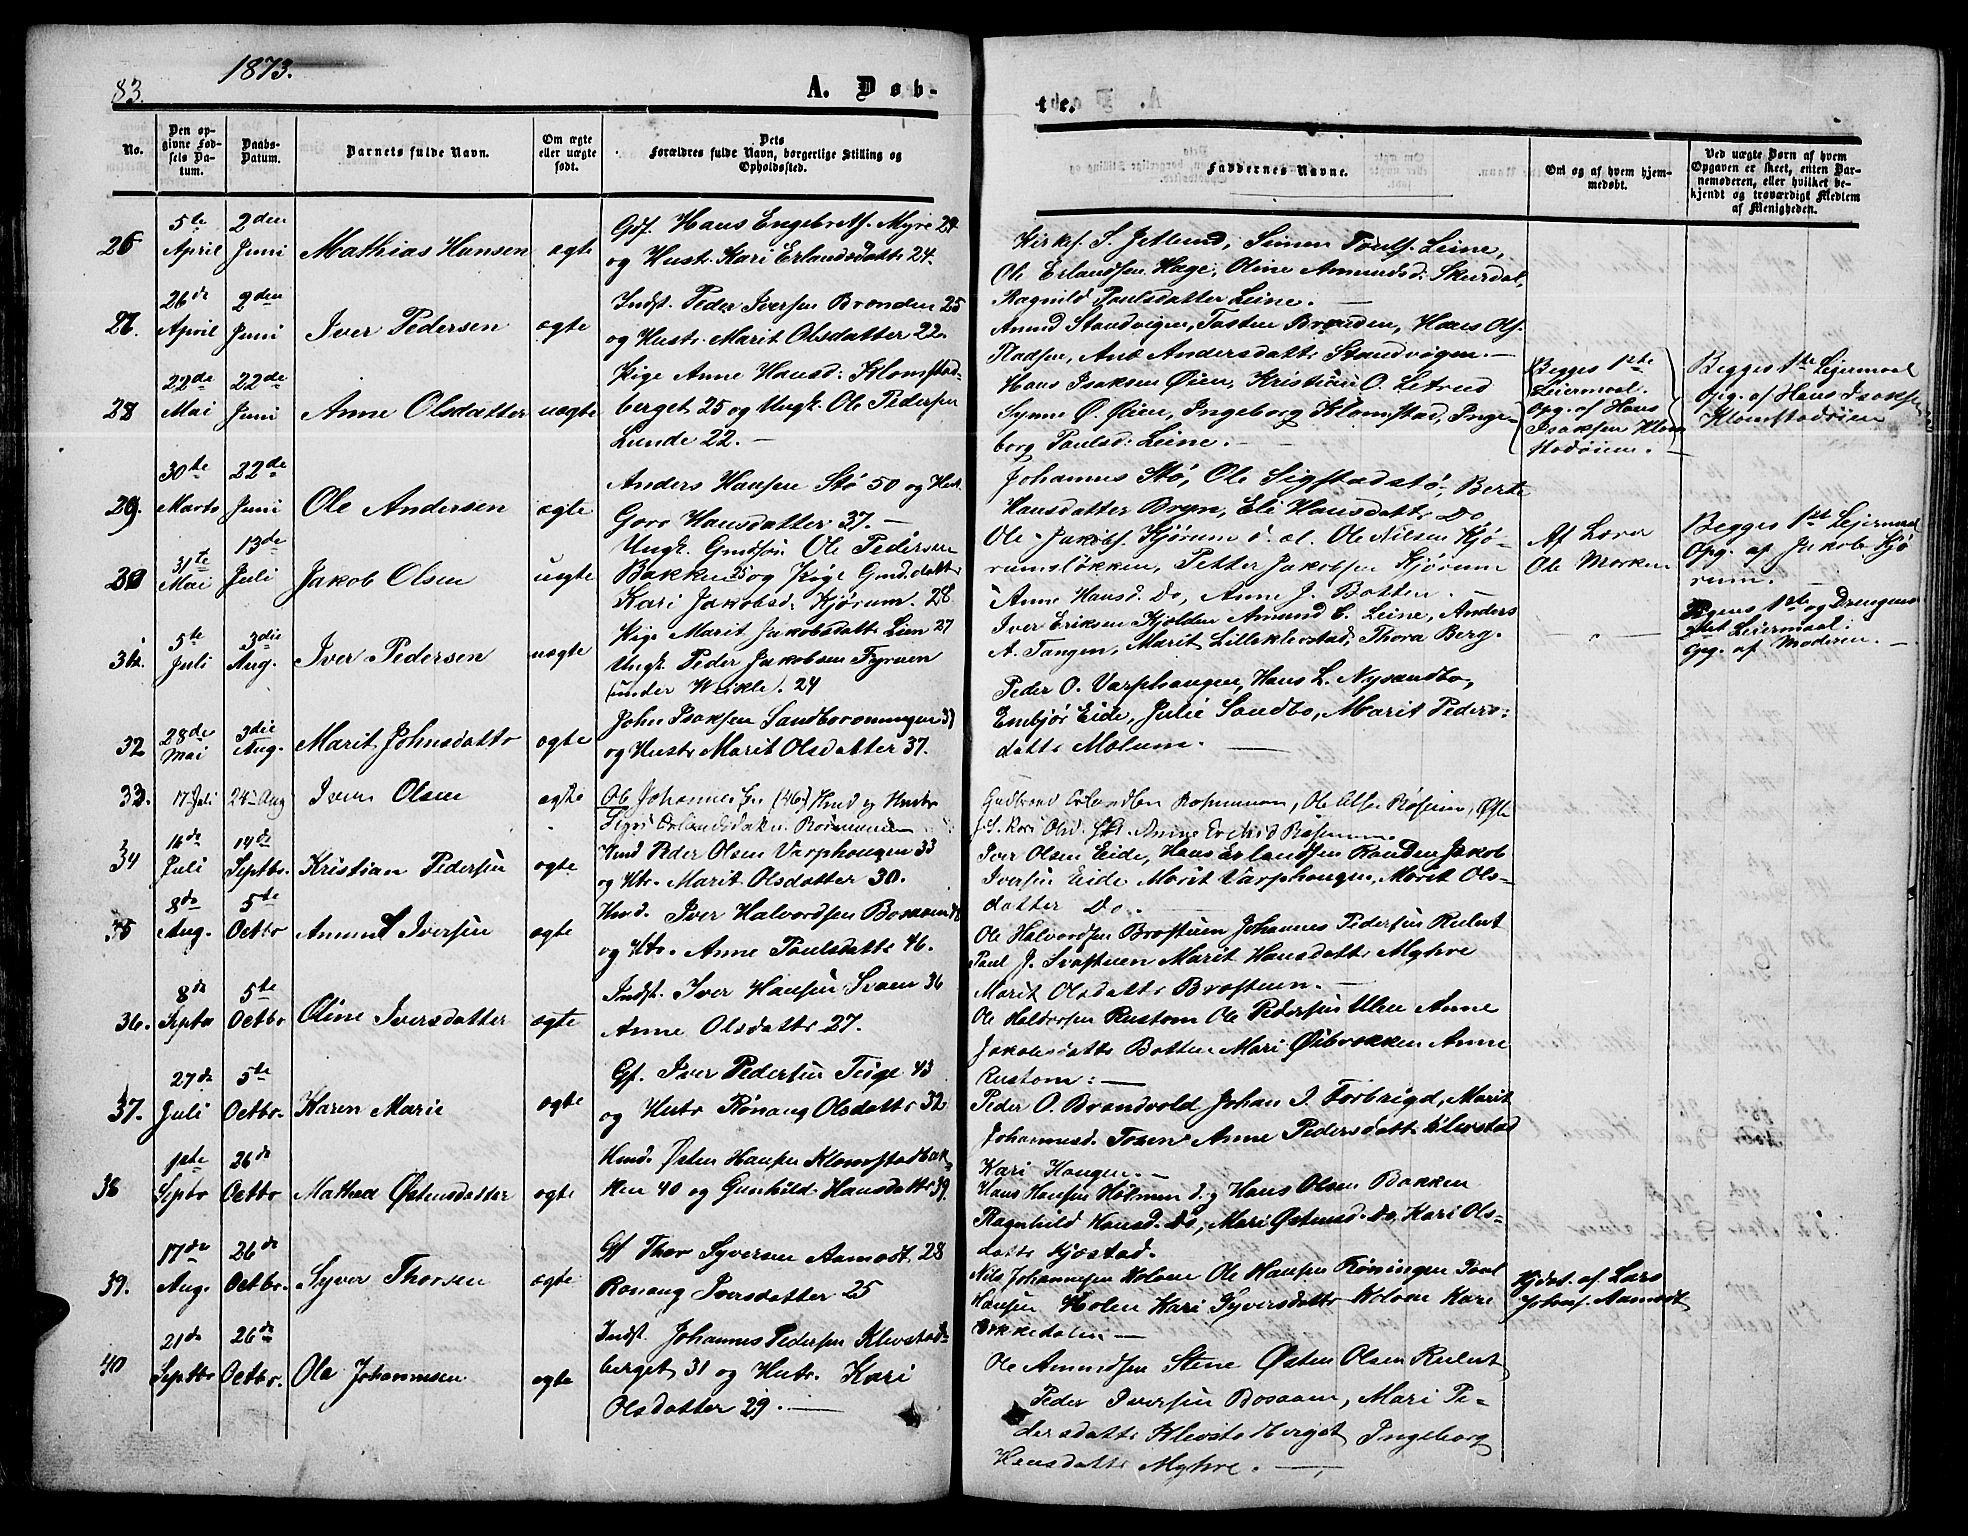 83.
1873.
A. Døb-
te.
No.
Den op-
givne Fød-
sels Da-
tum.
Daabs-
Datum.
Barnets fulde Navn.
Om ægte
eller uægte
født.
Dets
Forældres fulde Navn, borgerlige Stilling og
Opholdssted.
Faddernes Navne.
Om og af hvem hjem-
medøbt.
Ved uægte Børn af hvem
Opgaven er skeet, enten Bar-
nemoderen, eller hvilket be-
kjendt og troværdigt Medlem
af Menigheden.
26 5te April 2den Juni Mathias Hansen ægte
Gdf. Hans Engebretsf. Myre 29
og Hustr. Kari Erlandsdattr 24.
Kirkes. S. Jetlund, Simen Poulsf. Leine,
Ole Erlandsen Hage, Oline Amundsd. Skurdal,
Ragnild Poulsdatter Leine. —
27. 26de April 2den Juni Iver Pedersen ægte
Indst. Peder Iversen Brenden 25
og Hustr. Marit Olsdatter 22.
Amund Standvigen, Tosten Brenden, Hans Ols.
Pladsen, Anb Andersdattr Standvogen. —
28 22de Mai 22de Juni Anne Olsdatter uægte
Pige Anne Hansd: Klomstad-
berget 25 og Ungk. Ole Pedersen
Lunde 22. —
Hans Isaksen Øien, Kristian O. Letrud
Synne Ø. Øien, Ingeborg Klomstad, Inge-
borg Poulsd. Leine. —
Begges 1ste
Leiermaal.
Opg. af Hans
Isaksen Klom
stadøien. —
Begges 1ste Leiermaal
Opg. af Hans Isaksen
Klomstadøien
29. 30te Marts 22de Juni Ole Andersen ægte
Anders Hansen Stø 50 og Hust.
Goro Hansdatter 37. —
Johannes Stø, Ole Sigstadstø, Berte
Hansdatter Bryn, Eli Hansdattr Do
30 31te Mai 13de Juli Jakob Olsen uægte
Ungk. Gmdsøn Ole Pedersen
Bakken og Pige Gmd.dattr
Kari Jakobsd. Kjørum. 28
Ole Jakobsf. Kjørum i. al. Ole Nilsen Kjø-
rumsløkken, Petter Jakobsen Kjørum
Anne Hansd. Do, Anne J. Botten. —
Af Lærer
Ole Morken
Begges 1ste Leiermaal
Opg. af Jakob Kjø
rum. —
31. 5te Juli 3die Aug. Iver Pedersen uægte
Pige Marit Jakobsdattr Lien 27
Ungk. Peder Jakobsen Fyruen
under Weikle. 24
Iver Eriksen Kjolden Amund E. Leine, Anders
A. Tangen, Marit Lilleklevstad, Thora Berg.
Pigens 1ste og Drengens
Leiermaal:
Opg. af Moderen. —
32 28de Mai 3die Aug. Marit Johnsdattr ægte
John Isaksen Sandboroningen
og Hustr Marit Olsdatter 37.
Peder O. Varphaugen, Hans L. Nysandbo,
Embjør Eide, Julie Sandbo, Marit Peders-
dattr Molum. —
33. 17 Juli 24 Aug Iver Olsen ægte
Ole Johannesen (46) Hmd og Hustr
Sigri Erlandsdatter
Gudbrand Erlandsen Rosmunn, Ole
34 16de Juli 14de Septbr. Kristian Pedersen ægte
Hmd Peder Olsen Varphougen 33
og Htr. Marit Olsdatter 30.
Iver Olsen Eide, Hans Erlandsen Randen Jakob
Iversen Eide Marit Varphougen, Marit Ols-
datter Do. —
35 8de Aug. 5te Octbr Amund Iversen ægte
Hmd. Iver Halvordsen Bosaaen
og Htr. Anne Poulsdattr 46.
Ole Halvordsen Brostuen Johannes Pedersen Rulut
Poul J. Svostuen Marit Hansdattr Myhre
Marit Olsdattr Brostuen. —
36. 8de Septbr 5te Octbr Oline Iversdatter ægte
Indst. Iver Hansen Svaen 36
Anne Olsdattr 27.
Ole Haldorsen Rustom Ole Pedersen Ulen Anne
Jakobsdattr Botten Mari Øibrokken Anne
Rustom: —
37. 27de Juli 5te Octbr. Karen Marie ægte
Gf. Iver Pedersen Teige 43
og Hutr Rønaug Olsdattr 32.
Peder O. Brandvold Johan I. Forbrigd, Marit
Johannesd. Tosen Anne Pedersdattr Klevstad
Kari Haugen. —
38 1ste Septbr 26de Octbr Mathea Østensdatter ægte
Hmd. Østen Hansen Klomstadbak-
ken 40 og Gunhild Hansdattr 39.
Hans Hansen Holmen d.y Hans Olsen Bakken
Ragnhild Hansd. Do, Mari Østensd. Do, Kari Ols-
dattr Kjøstad.
39. 17de Aug. 26de Octbr. Syver Thorsen ægte
Gf Thor Syversen Aamodt 28
Ronaug Iversdatter 25
Nils Johannesen Holoen Ole Hansen Røningen Poul
Hansen Holen Kari Syversdattr Holoen Kari
Bekkedalen —
Hjdøt. af Lars
Johnsf. Aamodt
40 21de Septbr 26de Octbr. Ole Johannesen ægte
Indst. Johannes Pedersen Klevstad-
berget 31 og Hutr. Kari
Olsdatter 29. —
Ole Amundsen Stene Østen Olsen Rulut
Peder Iversen Bosaaen, Mari Pe-
dersdattr Klevstadberget Ingeborg
Hansdattr Myhre. —